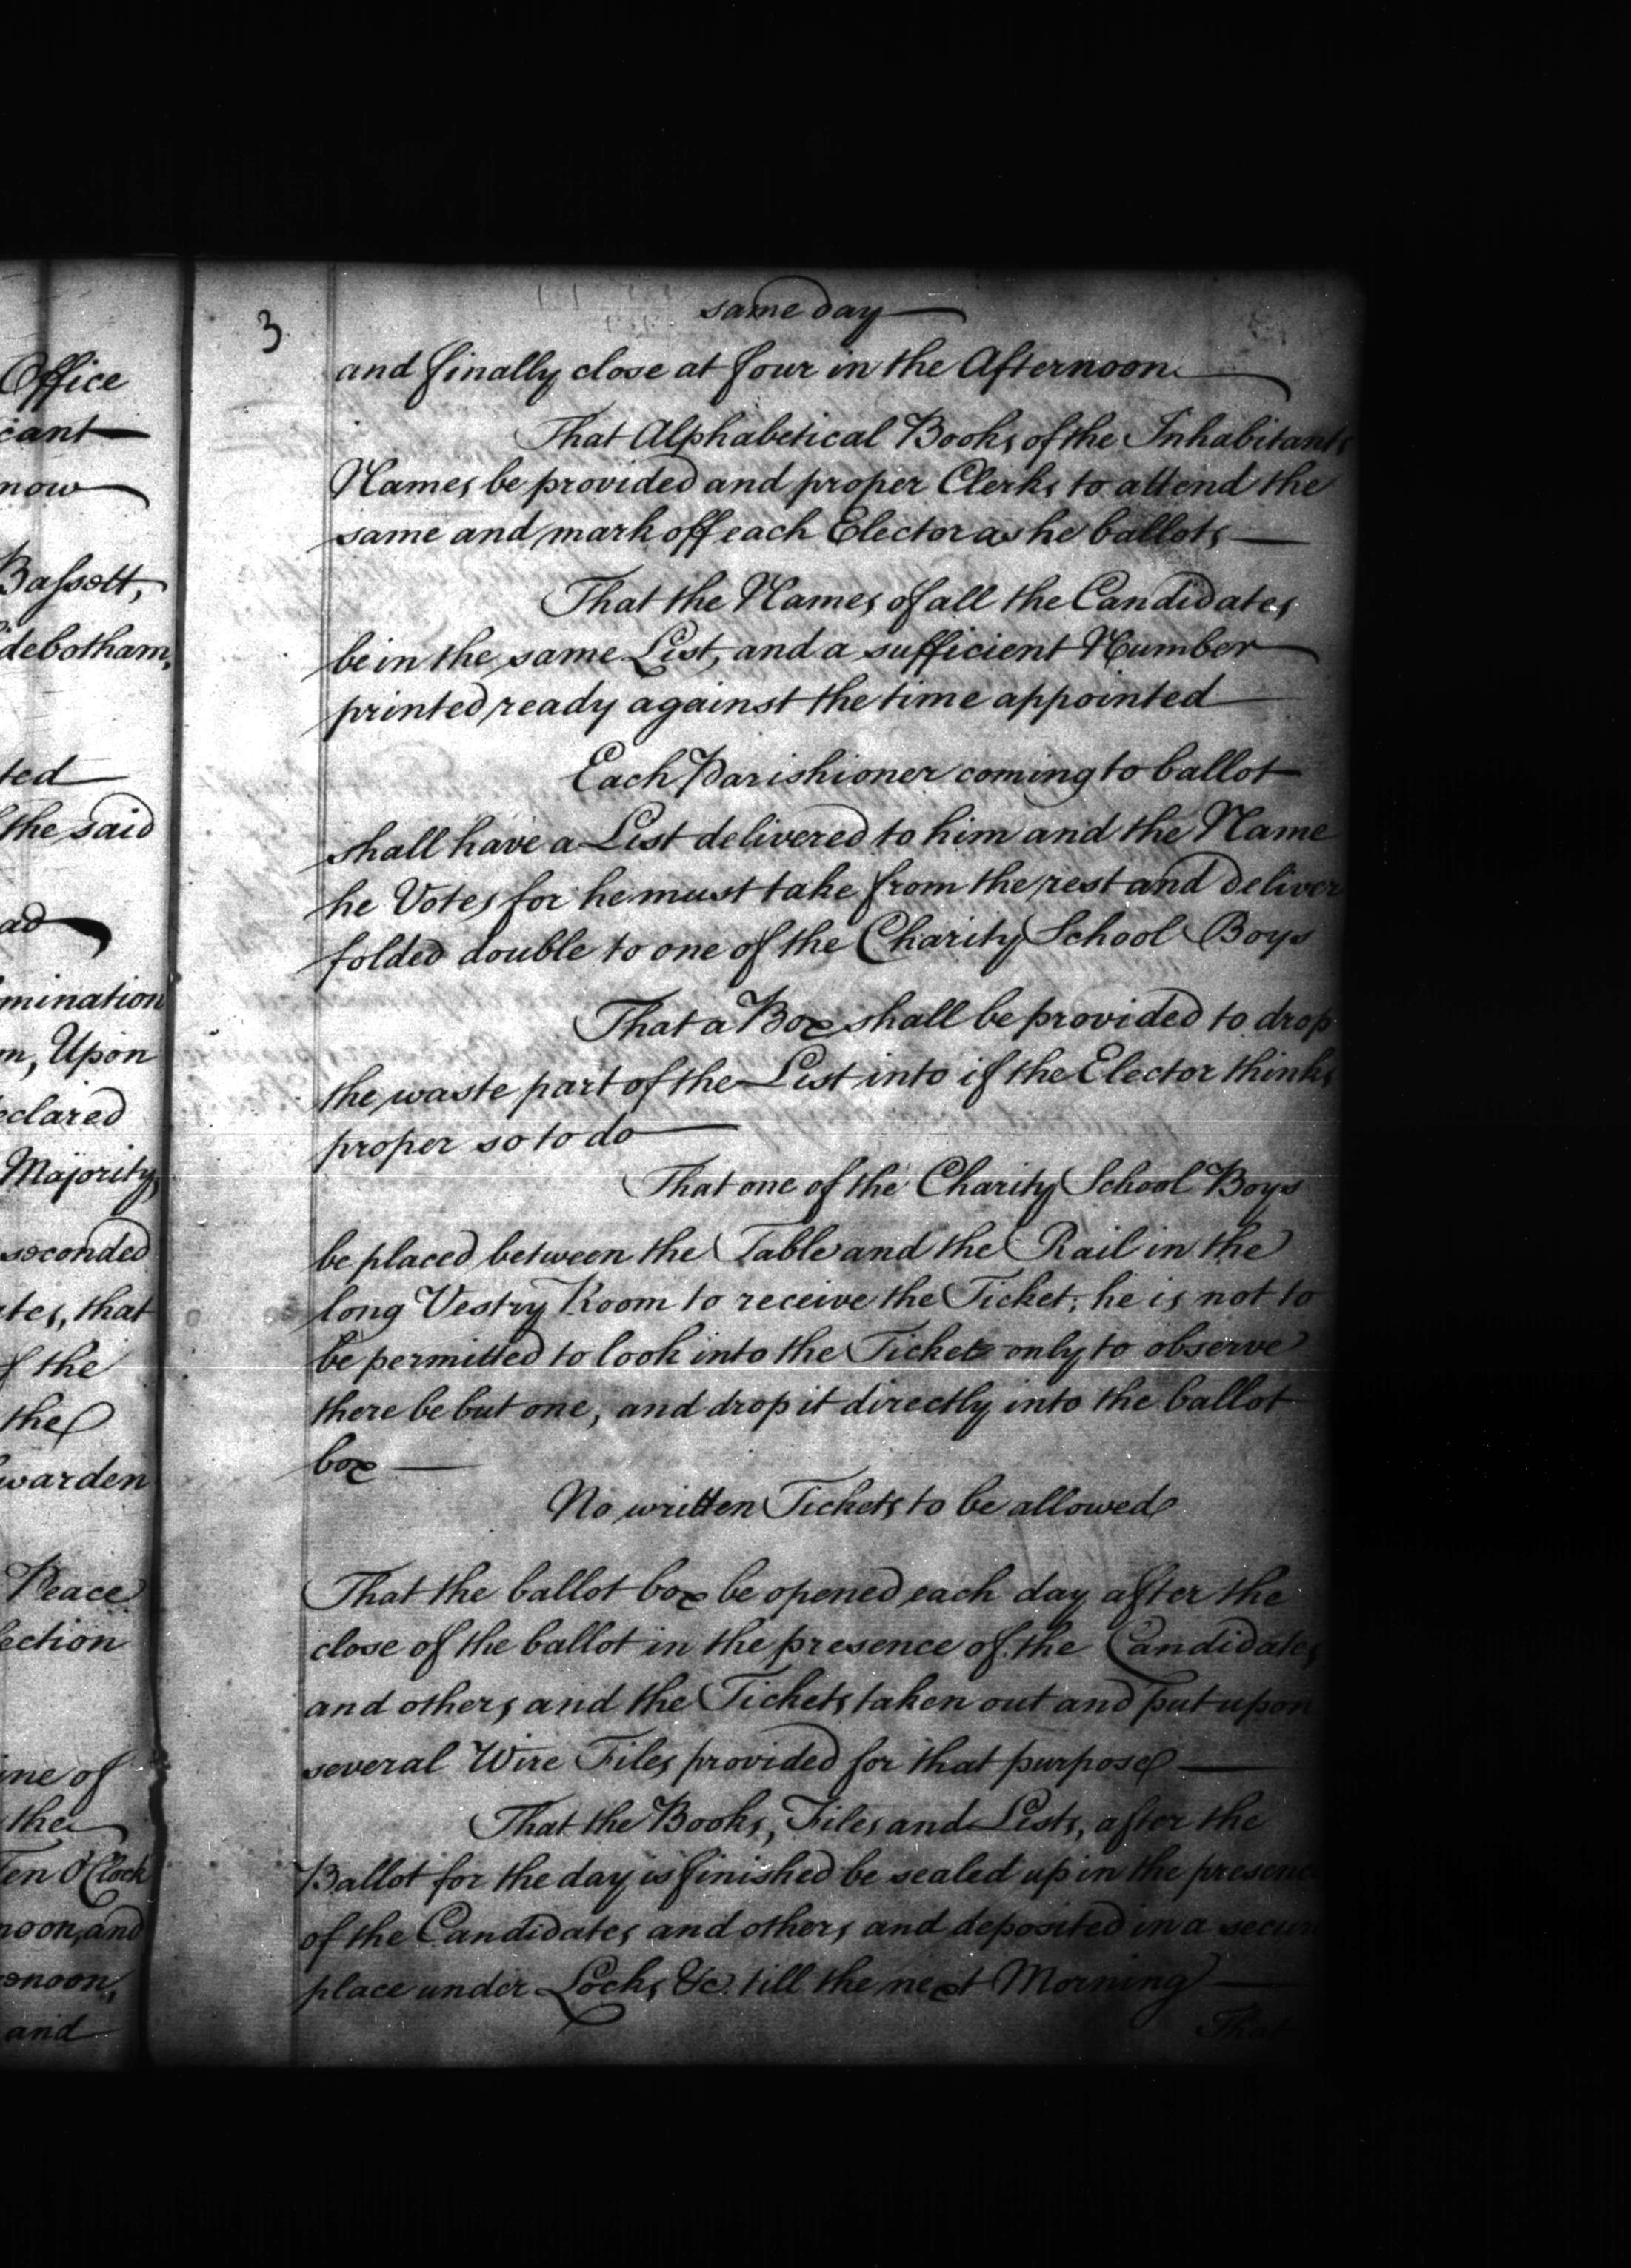 Office
cant
now
Bassott,
debotham,
ted
the said
ad
mination
n, Upon
eclared
Majority,
seconded
tes, that
f the
the
warden
Peace
ection
ine of
the
Ten O'Clock
noon, and
noon,
and
3
same day
and finally close at four in the Afternoon
That Alphabetical Books of the Inhabitants
Names be provided and proper Clerks to attend the
same and mark off each Elector as he ballots
That the Names of all the Candidates
be in the same List, and a sufficient Number
printed ready against the time appointed
Each Parishioner coming to ballot
shall have a List delivered to him and the Name
he Votes for he must take from the rest and deliver
folded double to one of the Charity School Boys
That a Box shall be provided to drop
the waste part of the List into if the Elector thinks
proper so to do
That one of the Charity School Boys
be placed between the Table and the Rail in the
long Vestry Room to receive the Ticket; he is not to
be permitted to look into the Ticket only to observe
there be but one, and drop it directly into the ballot
box
No written Tickets to be allowed
That the ballot box be opened each day after the
close of the ballot in the presence of the Candidates
and others, and the Tickets taken out and put upon
several Wire Files provided for that purpose
That the Books, Files and Lists, after the
Ballot for the day is finished be sealed up in the presenc
of the Candidates and others and deposited in a secur
place under Locks &c till the next Morning
That